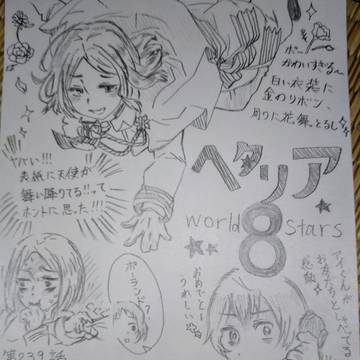 ポー
かわいすぎる〜
白い衣装に
金のリボン、
周りに花舞っとるし
ヤバい!!!
表紙に天使が
舞い降りてる!!って
ホントに思った!!!
ヘタリア
world
8
stars
ポーランド?
おめでとー
うれしい
アイスくんが
第239話